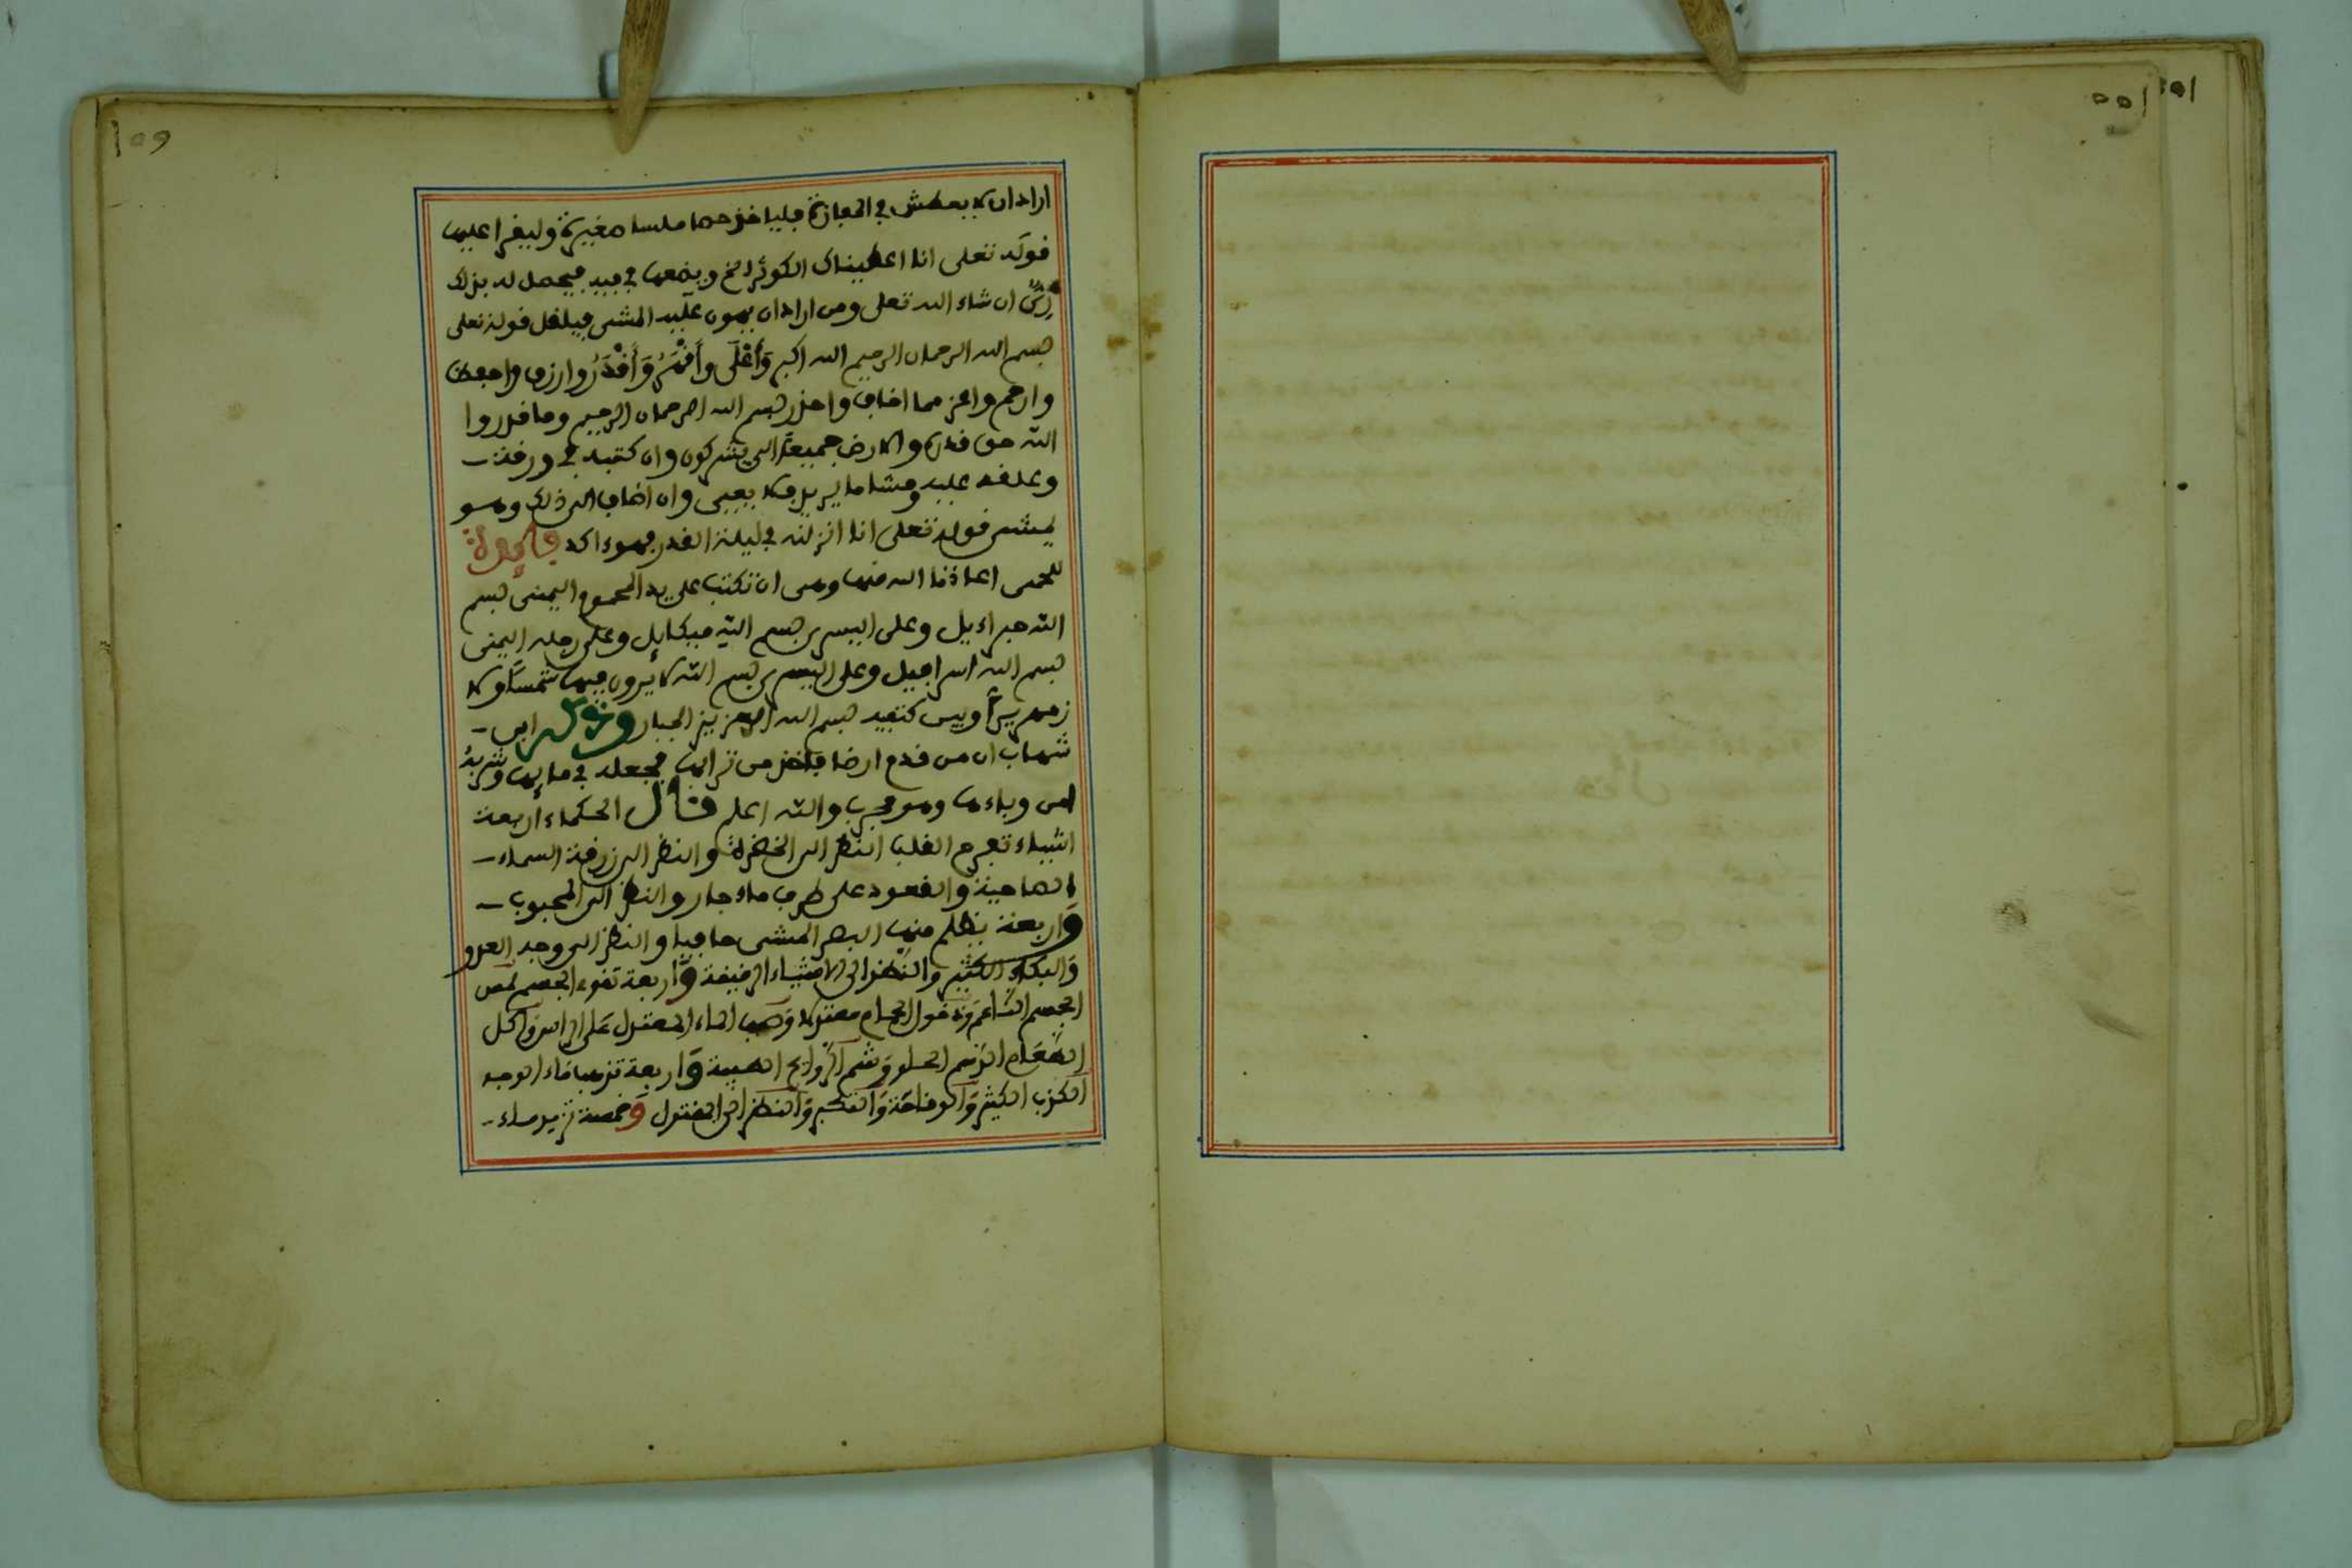 اراد ان لا يعطش في المفازة فلياخذ حصا ملسا صغيرة وليقرا عليها
قوله تعلى انا اعطيناك الكوثر الخ ويضعها في فيه فيحصل له بذلك
ري ان شاء الله تعلى ومن اراد ان يهون عليه المشي فيلقل قوله تعلى
بسم الله الرحمان الرحيم الله اكبر وَأَعْلَى وأَقْهَرُ وَأَقْدَرُ وارزق واحفظ
وارحم واعز مما اخاف واحذر بسم الله الرحمان الرحيم وما قدروا
الله حق قدره والارض جميعا الى يشركون وان كتبه في ورقة
وعلقه عليه ومشا ما يريد فلا يعيى وان اضاف الى ذلك وهو
يمشي قوله تعلى انا انزلنه في ليلة القدر فهو ءاكد فايدة
للحمى اعاذنا الله منها وهى ان تكتب على يد المحموم اليمنى بسم
الله جبراءيل وعلى اليسرى بسم الله ميكايل وعلى رجله اليمنى
بسم الله اسرافيل وعلى اليسرى بسم الله لا يرون فيها شمسا ولا
زمهريرا وبين كتفيه بسم الله العزيز الجبار وعن ابن
شهاب ان من قدم ارضا فاخذ من ترابها فجعله في مايها وشربه
امن وباءها وهو مجرب والله اعلم قال الحكماء اربعة
اشياء تفرح القلب النظر الى الخضرة والنظر الى زرقة السماء
الصاحية والقعود على طرف ماء جار والنظر الى المحبوب
وَاربعة يظلم منها البصر المشى حافيا والنظر الى وجه العدو
وَالبكاء الكثير والنظر الى الاشياء الرقيقة وَاربعة تقوى الجسم لمس
الجسم الناعم وَدخول الحمام معتدلا وَصب الماء المعتدل على الراس وَاكل
الطعام الدسم الحلو وَشم الروايح الطيبة وَاربعة تذهب ماء الوجه
الكذب الكثير وَالوقاحة وَالتكبر وَالنظر الى المقتول وَخمسة تزيد ماء
١٥٥